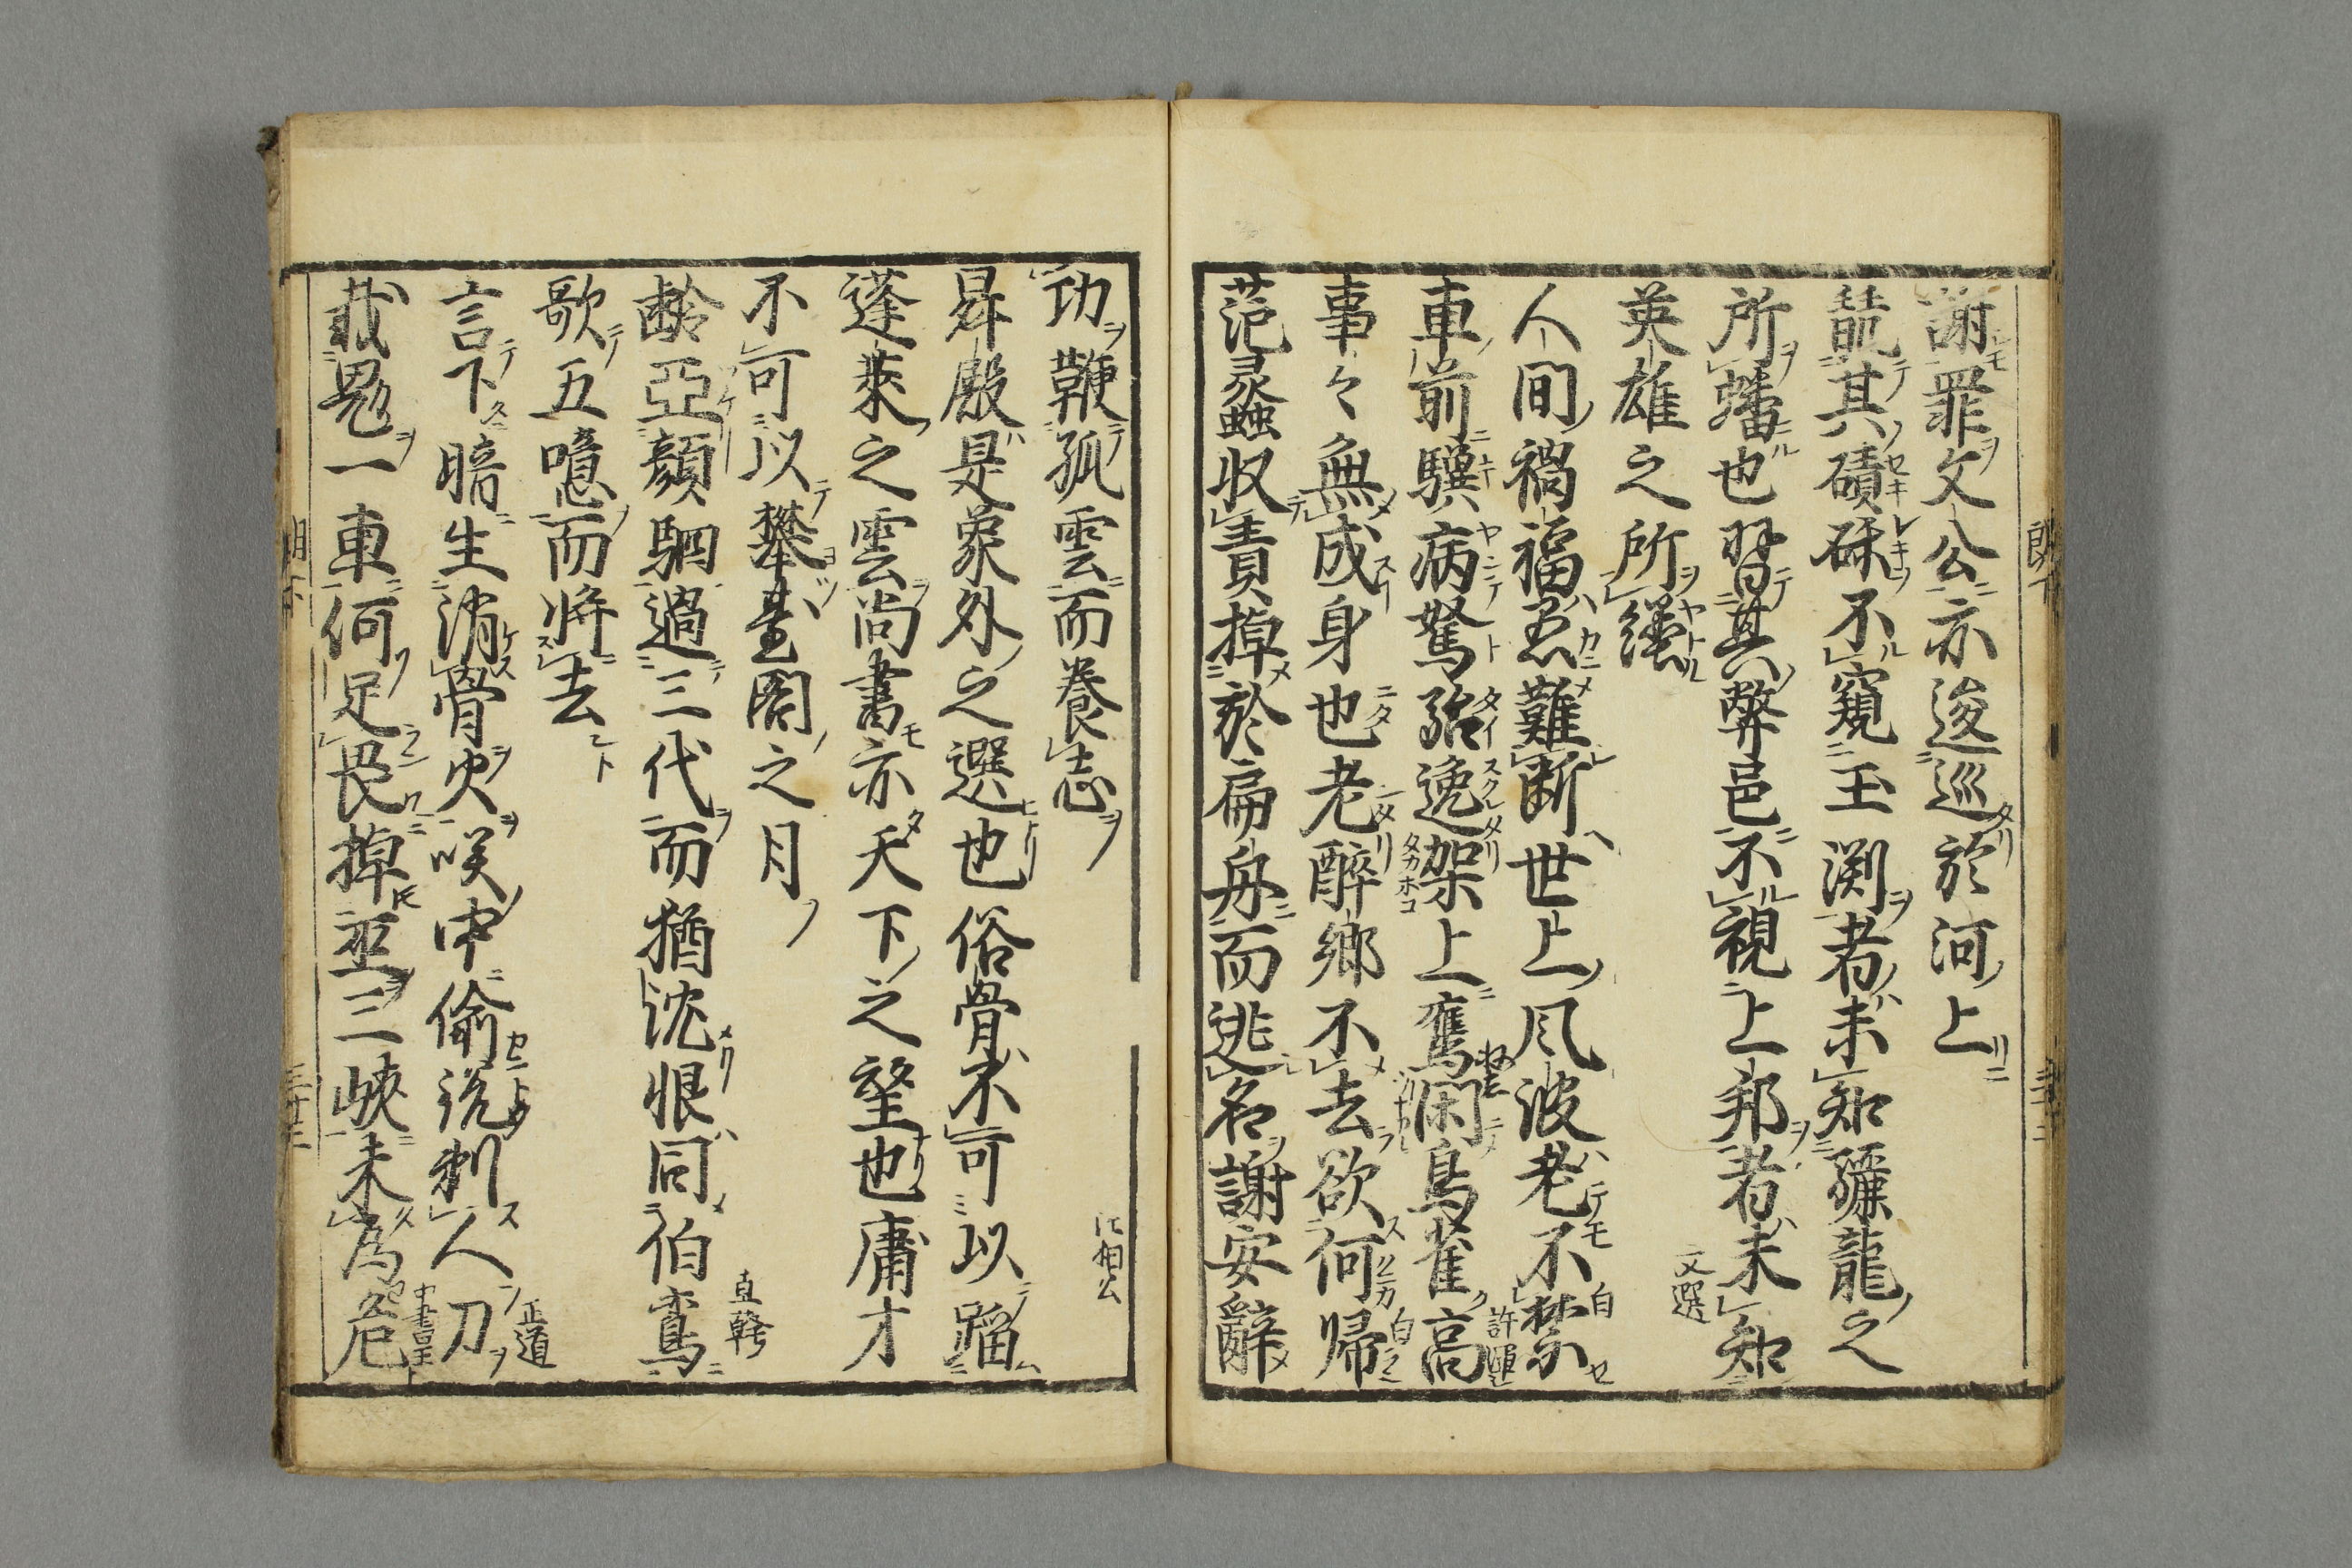 謝罪文公亦逡巡於河上
翫其磧礫不窺玉渕者未知驪龍之
所蟠也習其弊邑不視上邦者未知
英雄之所躔
文選
人間禍福愚難断世上風波老不禁
白
車前驥病駑駘逸架上鷹閑鳥雀高
許渾
事々無成身也老醉郷不去欲何帰
白
范蠡収責掉於扁舟而逃名謝安辭
功鞭孤雲而養志
江相公
昇殿是象外之選也俗骨不可以蹈
蓬莱之雲尚書亦天下之望也庸才
不可以攀臺閣之月
直幹
齢亞顔駟過三代而猶沈恨同伯鸞
歌五噫而将去
正通
言下暗生消骨火咲中偸鋭刺人刀
載鬼一車何足畏掉巫三峡未為危
中書王